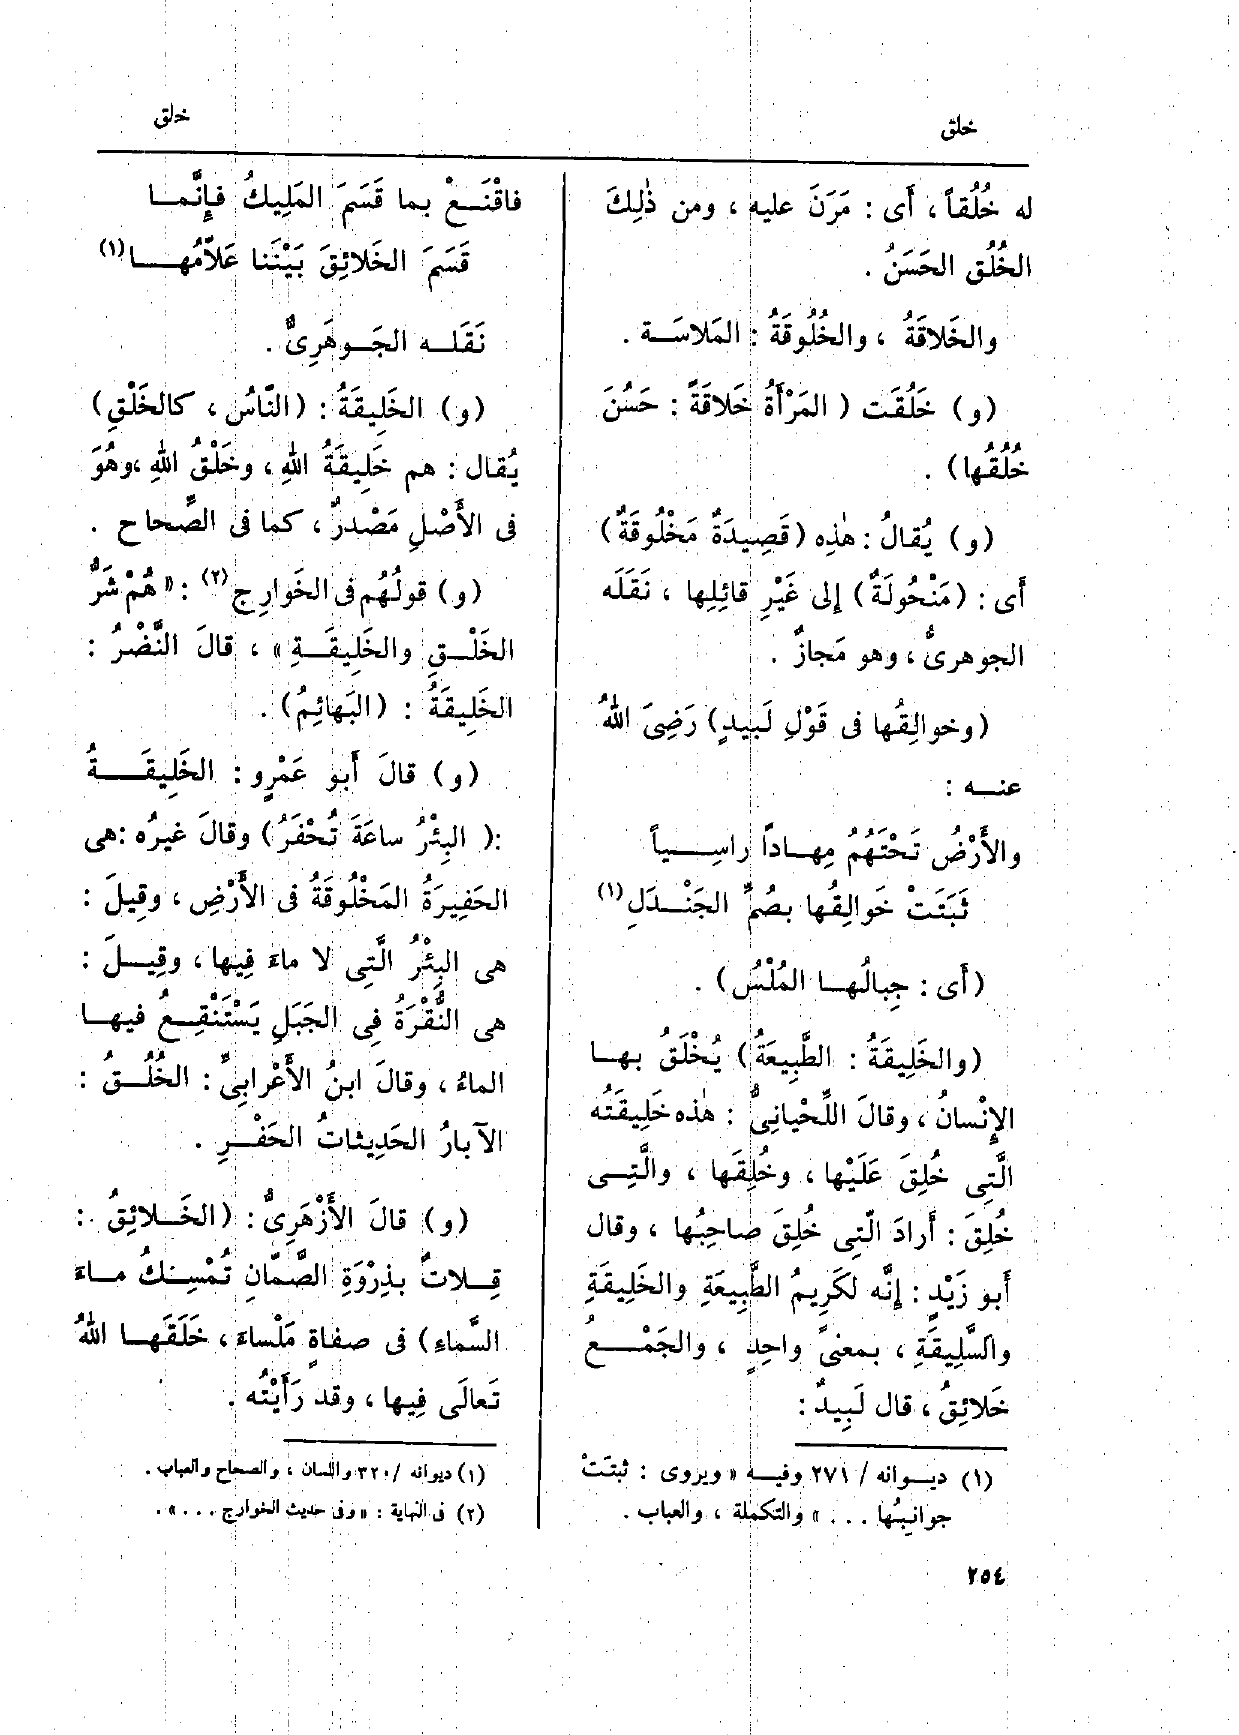 خلق
خلق
له خُلُقاً ، أَى : مَرَنَ عليه ، ومن ذٰلِكَ
الخُلُق الحَسَنُ .
والخَلاقَةُ ، والخُلُوقَةُ : المَلاسَـة .
(و) خَلُقَت ( المَرْأَةُ خَلاقَةً : حَسُنَ
خُلُقُها) .
(و) يُقالُ : هٰذِه (قَصِيدَةٌ مَخْلُوقَةٌ)
أَى : (مَنْحُولَةٌ) إلى غَيْرِ قائِلِها ، نَقَلَه
الجوهرىُّ ، وهو مَجازٌ .
(وخوالِقُها فى قَوْلِ لَبِيدٍ) رَضِىَ اللهُ
عنـه :
والأَرْضُ تَحْتَهُمُ مِهـاداً راسِـــياً
ثَبَتَتْ خَوالِقُها بصُمِّ الجَنْـدَلِ (١)
(أَى : جِبالُهـا المُلْسُ) .
(والخَلِيقَةُ : الطَّبِيعَةُ) يُخْلَقُ بهـا
الإِنْسانُ ، وقالَ اللِّحْيانِىُّ : هٰذه خَلِيقَتُه
الَّتِى خُلِقَ عَلَيْها ، وخُلِقَها ، والَّتِـى
خُلِقَ : أَرادَ الَّتِى خُلِقَ صاحِبُها ، وقال
أَبو زَيْدٍ : إِنَّه لكَرِيمُ الطَّبِيعَةِ والخَلِيقَةِ
والسَّلِيقَةِ ، بمعنىً واحِدٍ ، والجَمْـــعُ
خَلائِقُ ، قال لَبِيدٌ :
(١) ديـوانه / ٢٧١ وفيـه « ويروى : ثبتَتْ
جوانبُها . . . » والتكملة ، والعباب .
فاقْنَـعْ بما قَسَمَ المَلِيكُ فإِنَّمـا
قَسَمَ الخَلائِقَ بَيْنَنا عَلاَّمُهـــا (١)
نَقَلـه الجَـوهَرِىُّ .
(و) الخَلِيقَةُ : (النّاسُ ، كالخَلْقِ)
يُقال : هم خَلِيقَةُ اللهِ ، وخَلْقُ اللهِ ، وهُوَ
فى الأَصْلِ مَصْدرٌ ، كما فى الصِّحاح .
(و) قولُهُم فى الخَوارِج (٢) : « هُمْ شَرُّ
الخَلْـقِ والخَلِيقَـةِ » ، قالَ النَّضْرُ :
الخَلِيقَةُ : (البَهائِمُ) .
(و) قالَ أَبو عَمْرٍو : الخَلِيقَــــةُ
:( البِئْرُ ساعَةَ تُحْفَرُ) وقالَ غيرُه :هى
الحَفِيرَةُ المَخْلُوقَةُ فى الأَرْضِ ، وقِيلَ :
هى البِئْرُ الَّتِى لا ماءَ فِيها ، وقِيـلَ :
هى النُّقْرَةُ فِى الجَبَلِ يَسْتَنْقِـعُ فيهـا
الماءُ ، وقالَ ابنُ الأَعْرابِىِّ : الخُلُـقُ :
الآبارُ الحَدِيثاتُ الحَفْـرِ .
(و) قالَ الأَزْهَرِىُّ : (الخَـلائِقُ :
قِـلاتٌ بذِرْوَةِ الصَّمّانِ تُمْسِـكُ مـاءَ
السَّماءِ) فى صفاةٍ مَلْساءَ ، خَلَقَهـا اللهُ
تَعالَى فِيها ، وقد رَأَيْتُه .
(١) ديوانه /٣٢٠ واللسان ، والصحاح والعباب .
(٢) فى النهاية : « وفى حديث الخوارج . . . » .
٢٥٤